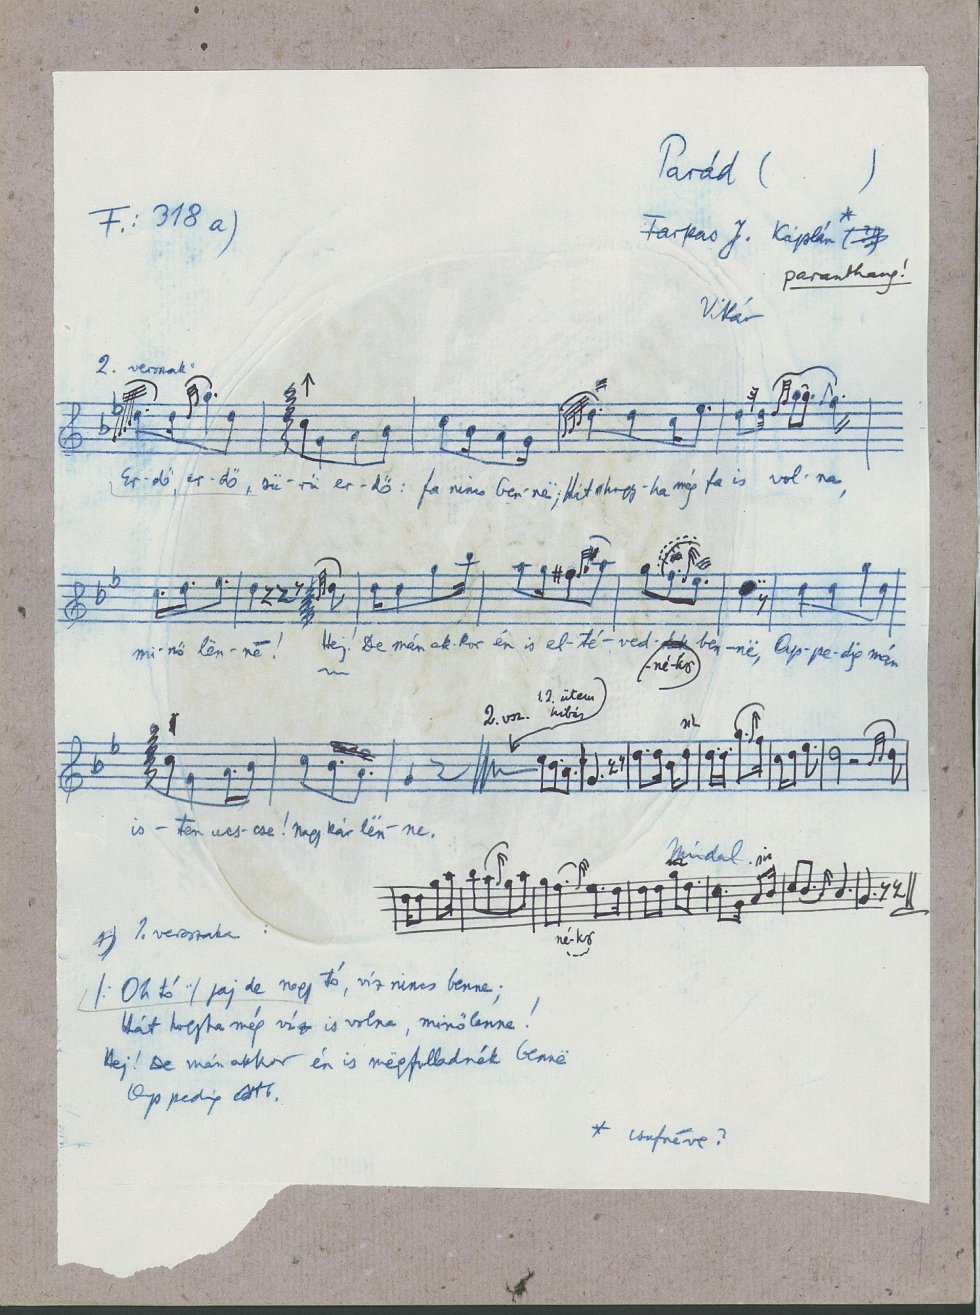 Parád (          )
F.: 318 a)
Farkas J. Káplán *
paranthang!
Vikár
2. versszak:
Er-dő, er-dő, sü-rü er-dő: fa nincs ben-në; Hát hogy-ha még fa is vol-na,
mi-nő lën-në! Hej! De mán ak-kor én is el-té-ved- ben-në, Op-pe-dig mán
-né-k
2. vsz. 12. ütem
hibás
is-ten ucs-cse! nagy kár lën-ne.
Mindal.
né-k
1. versszaka :
/: Oh tó :/ jaj de nagy tó, víz nincs benne;
Hát hogyha még víz is volna, minő lenne!
Hej! De mán akkor én is mëgfulladnék bennë
Op pedig stb.
* csufnéve?